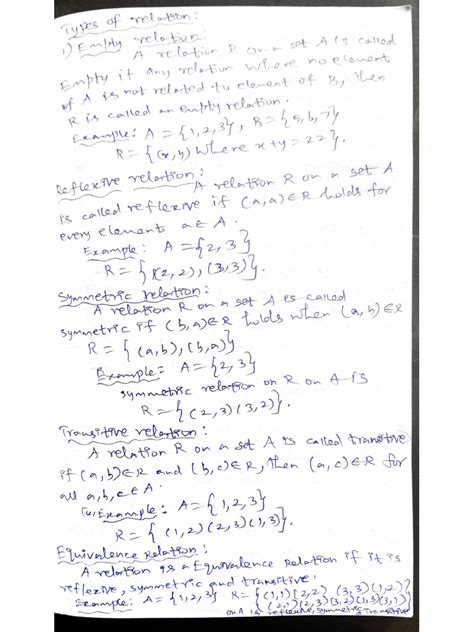 Types of relation:
1) Empty relation:
A relation R on a set A is called
Empty if any relation where no element
of A is not related to element of B, then
R is called an empty relation.
Example: A = {1,2,3}, B = {5,6,7}
R = {(x,y) where x+y = 22}.
Reflexive relation:
A relation R on a set A
is called reflexive if (a,a)∈R holds for
every element a∈A.
Example: A = {2,3}
R = {(2,2),(3,3)}.
Symmetric relation:
A relation R on a set A is called
symmetric if (b,a)∈R holds when (a,b)∈R
R = {(a,b),(b,a)}
Example: A = {2,3}
symmetric relation on R on A is
R = {(2,3)(3,2)}.
Transitive relation:
A relation R on a set A is called transitive
if (a,b)∈R and (b,c)∈R, then (a,c)∈R for
all a,b,c∈A.
Example: A = {1,2,3}
R = {(1,2)(2,3)(1,3)}.
Equivalence Relation:
A relation is a Equivalence Relation if it is
reflexive, symmetric and transitive.
Example: A = {1,2,3} R = {(1,1)(2,2) (3,3)(1,2)
(2,1)(2,3)(3,2)(1,3)(3,1)}
on A is reflexive, symmetric & Transitive